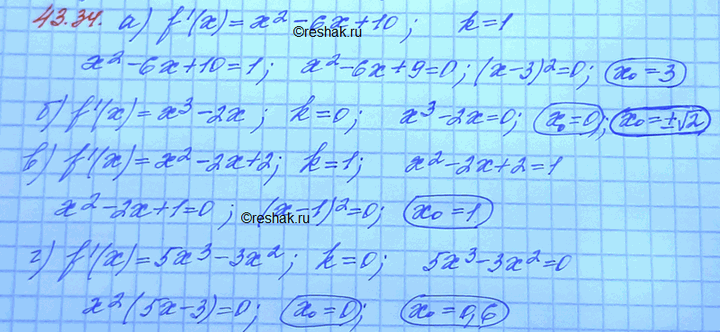 43.34. а) f'(x) = x² - 6x + 10; k = 1
©reshak.ru
x² - 6x + 10 = 1; x² - 6x + 9 = 0; (x - 3)² = 0; x₀ = 3
б) f'(x) = x³ - 2x; k = 0; x³ - 2x = 0; x₀ = 0; x₀ = ±√2
в) f'(x) = x² - 2x + 2; k = 1; x² - 2x + 2 = 1
x² - 2x + 1 = 0; (x - 1)² = 0; x₀ = 1
©reshak.ru
г) f'(x) = 5x³ - 3x²; k = 0; 5x³ - 3x² = 0
x²(5x - 3) = 0; x₀ = 0; x₀ = 0,6